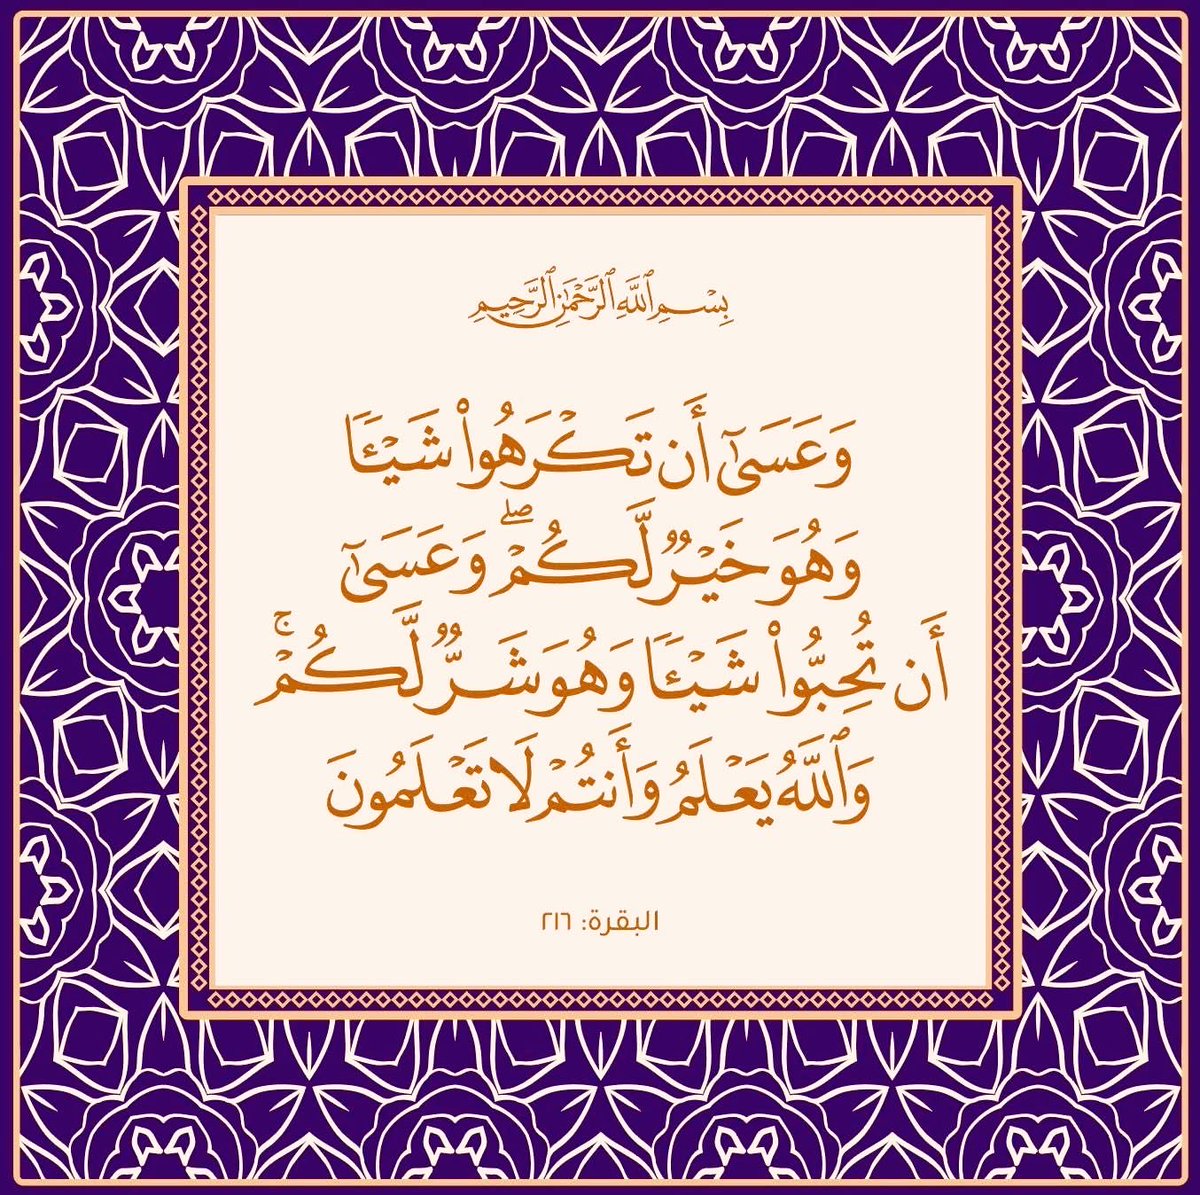 بِسْمِ ٱللَّهِ ٱلرَّحْمَٰنِ ٱلرَّحِيمِ
وَعَسَىٰٓ أَن تَكْرَهُوا۟ شَيْـًٔا
وَهُوَ خَيْرٌ لَّكُمْ ۖ وَعَسَىٰٓ
أَن تُحِبُّوا۟ شَيْـًٔا وَهُوَ شَرٌّ لَّكُمْ ۚ
وَٱللَّهُ يَعْلَمُ وَأَنتُمْ لَا تَعْلَمُونَ
البقرة: ٢١٦